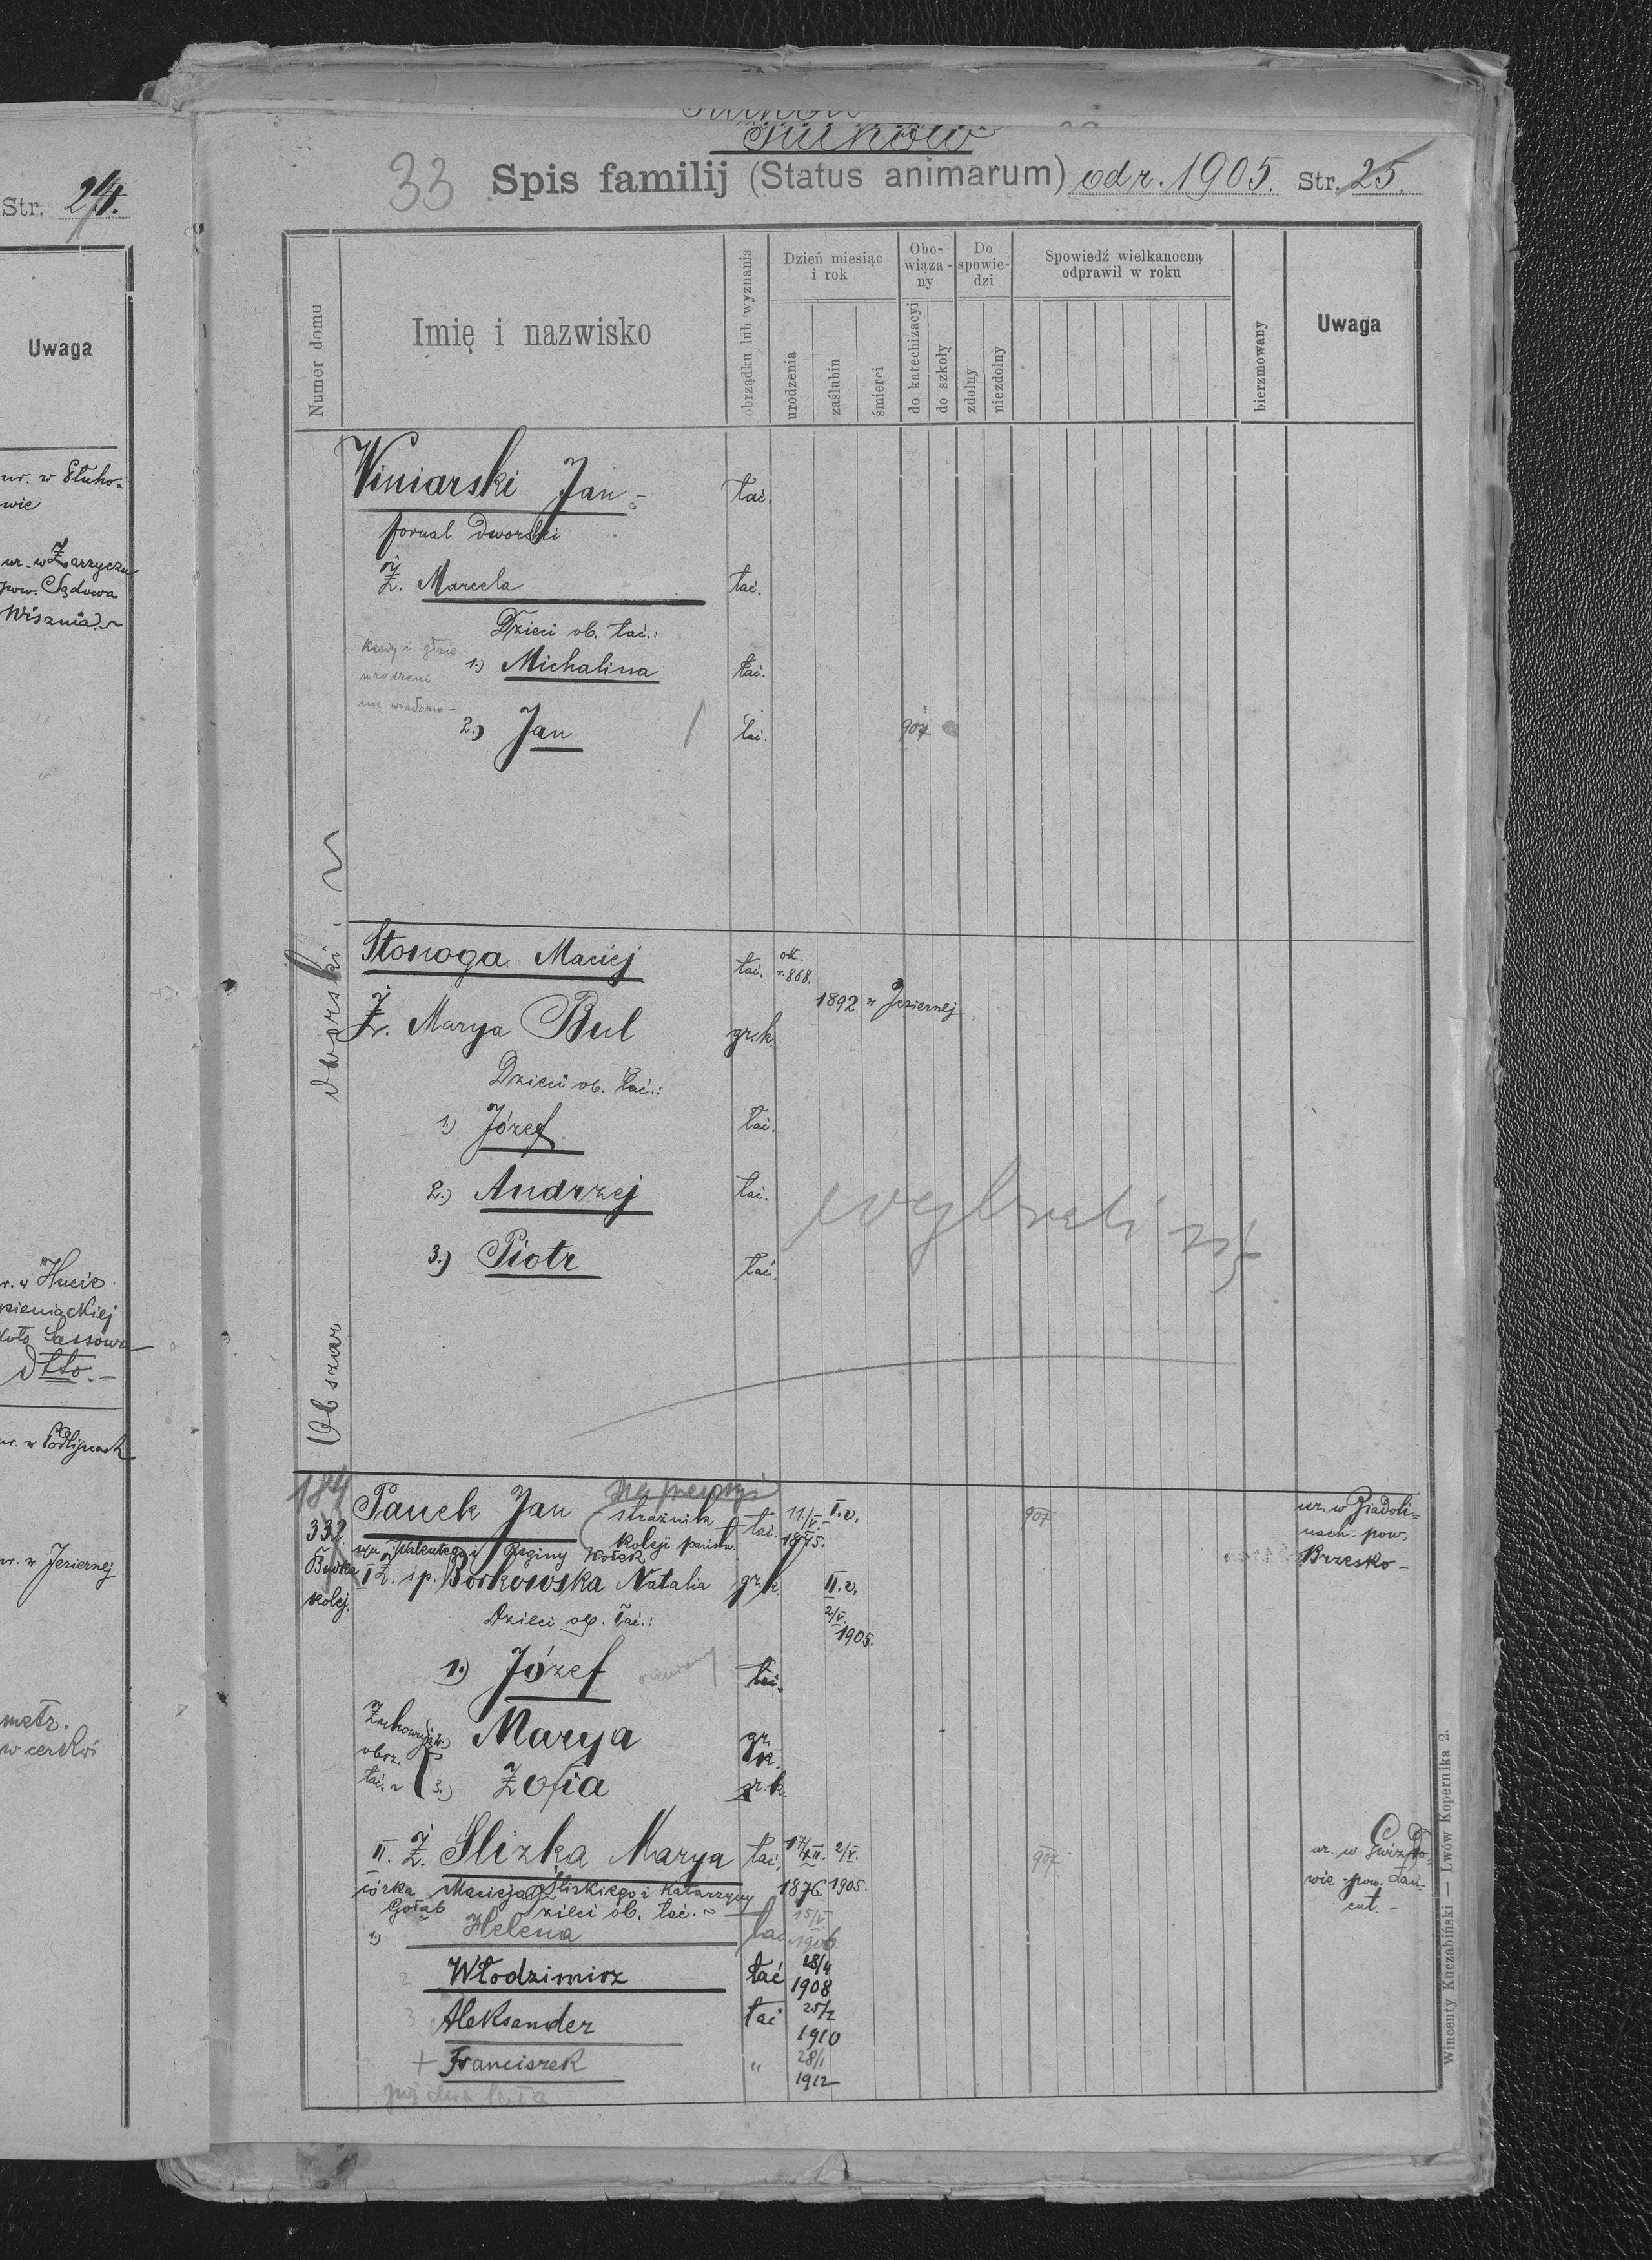 Str. 24.
Uwaga
wie
ur. w Zarzyczu
pow. Sądowa
Wisznia.
w Hucie
pieniackiej
koło Sassowa
dtto. -
ur. w Podlipcach
ur. w Jeziernej
metr.
w cerkwi
33 Spis familij (Status animarum) od r. 1905. Str. 25.
Numer domu
Imię i nazwisko
obrządku lub wyznania
Dzień miesiąc i rok
urodzenia
zaślubin
śmierci
Obo-wiąza-ny
do katechizacyi
do szkoły
Do spowie-dzi
zdolny
niezdolny
Spowiedź wielkanocną odprawił w roku
bierzmowany
Uwaga
Obszar dworski
Winiarski Jan łać.
fornal dworski
Ż. Marcela łać.
Dzieci ob. łać.:
Kiedy i gdzie
urodzeni
nie wiadomo -
1.) Michalina łać.
2.) Jan łać. 907
Stonoga Maciej łać. ok. r. 868.
1892 w Jeziernej
Ż. Marya Bul gr.k.
Dzieci ob. łać.:
1) Józef łać.
2.) Andrzej łać.
3.) Piotr łać.
184
332
Budka
kolej.
Panek Jan strażnik łać. 11/V. I.v. 907 ur. w
kolei państw. 1875. nach pow.
syn Walentego i Reginy Brzesko -
I Ż. śp. Borkowska Natalia gr.k. II.v.
Dzieci ob. łać.: 2/V. 1905.
1.) Józef łać.
2.) Marya gr. k.
obrz.
łać.
3.) Zofia gr.k.
II. Ż. Slizka Marya łać. 17/XII. 2/V. 907. ur. w
1876 1905. wie pow. Łań-
cut. -
córka Macieja Ślizkiego i Katarzyny
Gołąb Dzieci ob. łać.
1) Helena łać 15/V. 1906
2 Włodzimirz łać 18/4 1908
3 Aleksander łać 25/2 1910
+ Franciszek " 28/1 1912
Wincenty Kuczabiński — Lwów Kopernika 2.